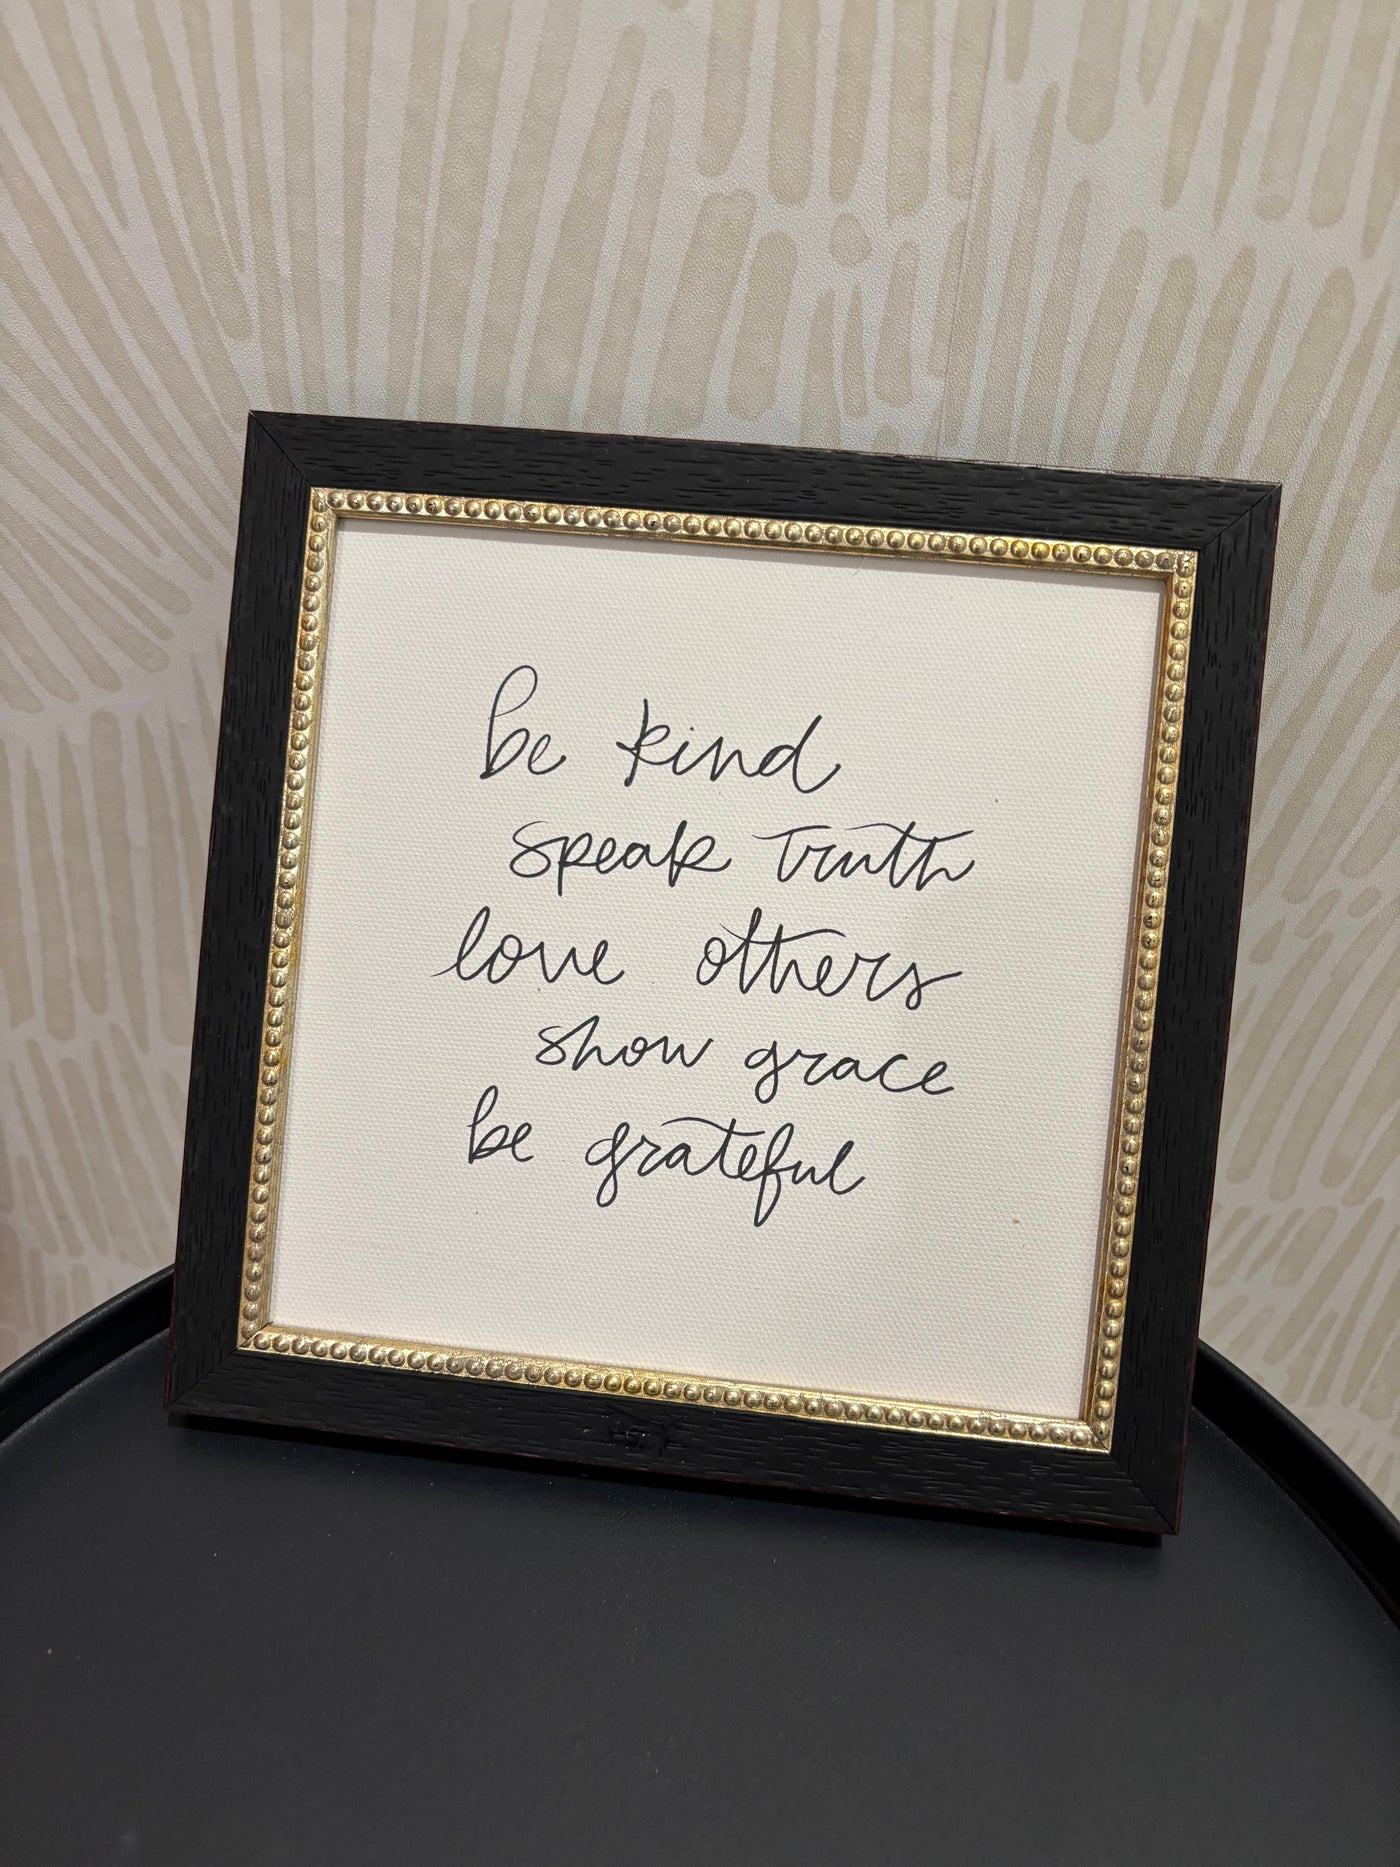 be kind
speak truth
love others
show grace
be grateful